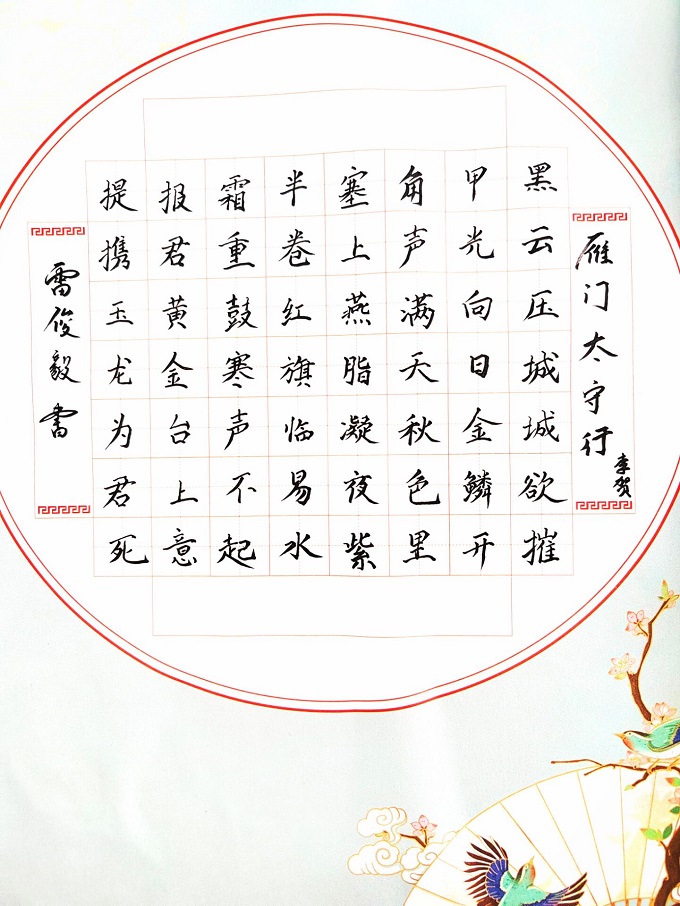 雁门太守行
李贺
黑云压城城欲摧
甲光向日金鳞开
角声满天秋色里
塞上燕脂凝夜紫
半卷红旗临易水
霜重鼓寒声不起
报君黄金台上意
提携玉龙为君死
雷俊毅书